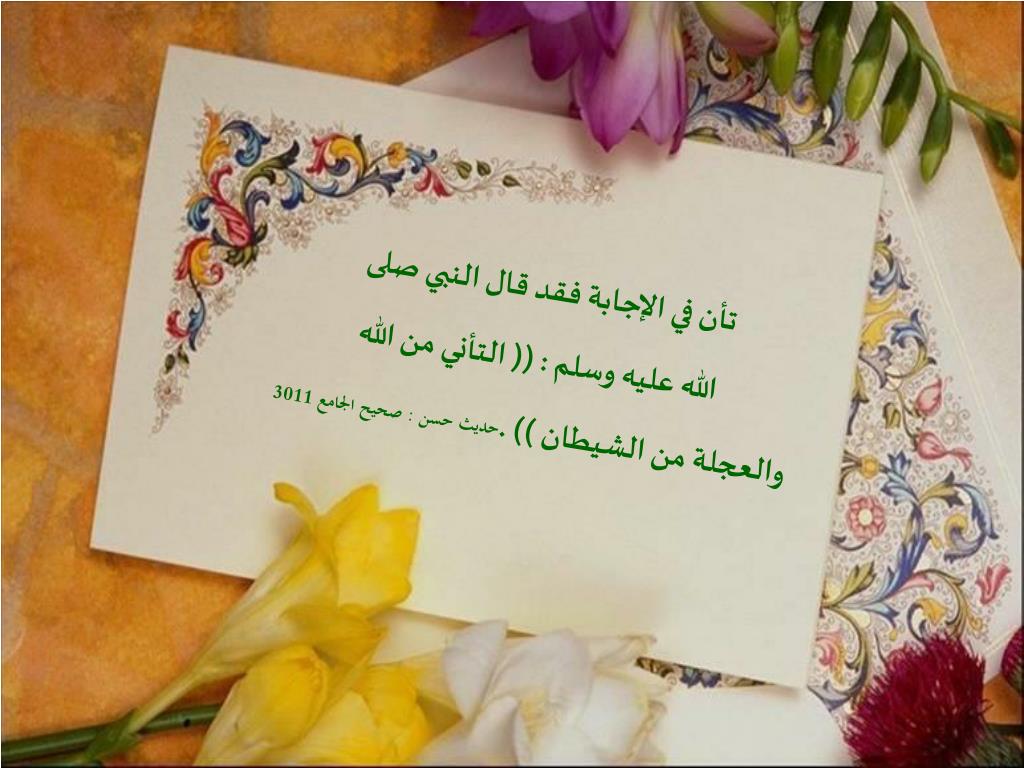 تأن في الإجابة فقد قال النبي صلى
الله عليه وسلم : (( التأني من الله
والعجلة من الشيطان )) .حديث حسن : صحيح الجامع 3011